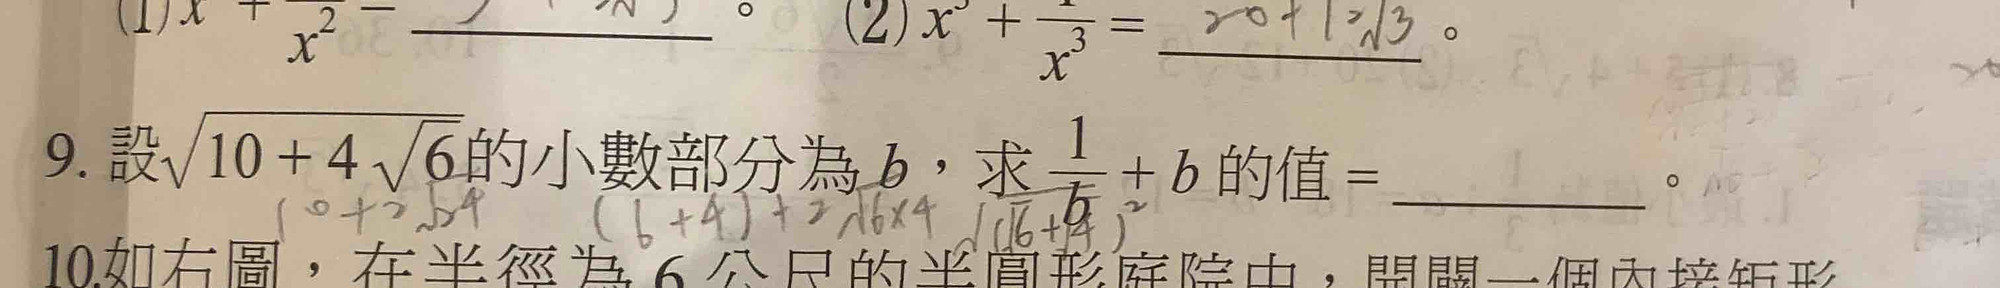 (1)x + 1/x² = 。 (2) x³ + 1/x³ = 20+12√3 。
9. 設√(10 + 4√6)的小數部分為 b,求 1/b + b 的值 = 。
10+2√24 (6+4)+2√6×4 √(√6+√4)²
10.如右圖,在半徑為 6 公尺的半圓形庭院中,開闢一個內接矩形